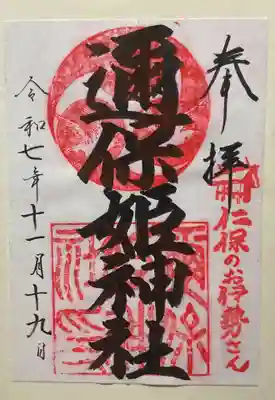 奉拝
仁保のお伊勢さん
邇保姫神社
令和七年十一月十九日